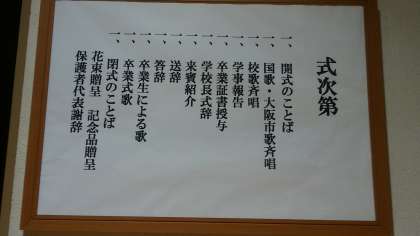 式次第
一、開式のことば
一、国歌・大阪市歌斉唱
一、校歌斉唱
一、学事報告
一、卒業証書授与
一、学校長式辞
一、来賓紹介
一、送辞
一、答辞
一、卒業生による歌
一、卒業式歌
一、閉式のことば
花束贈呈 記念品贈呈
保護者代表謝辞